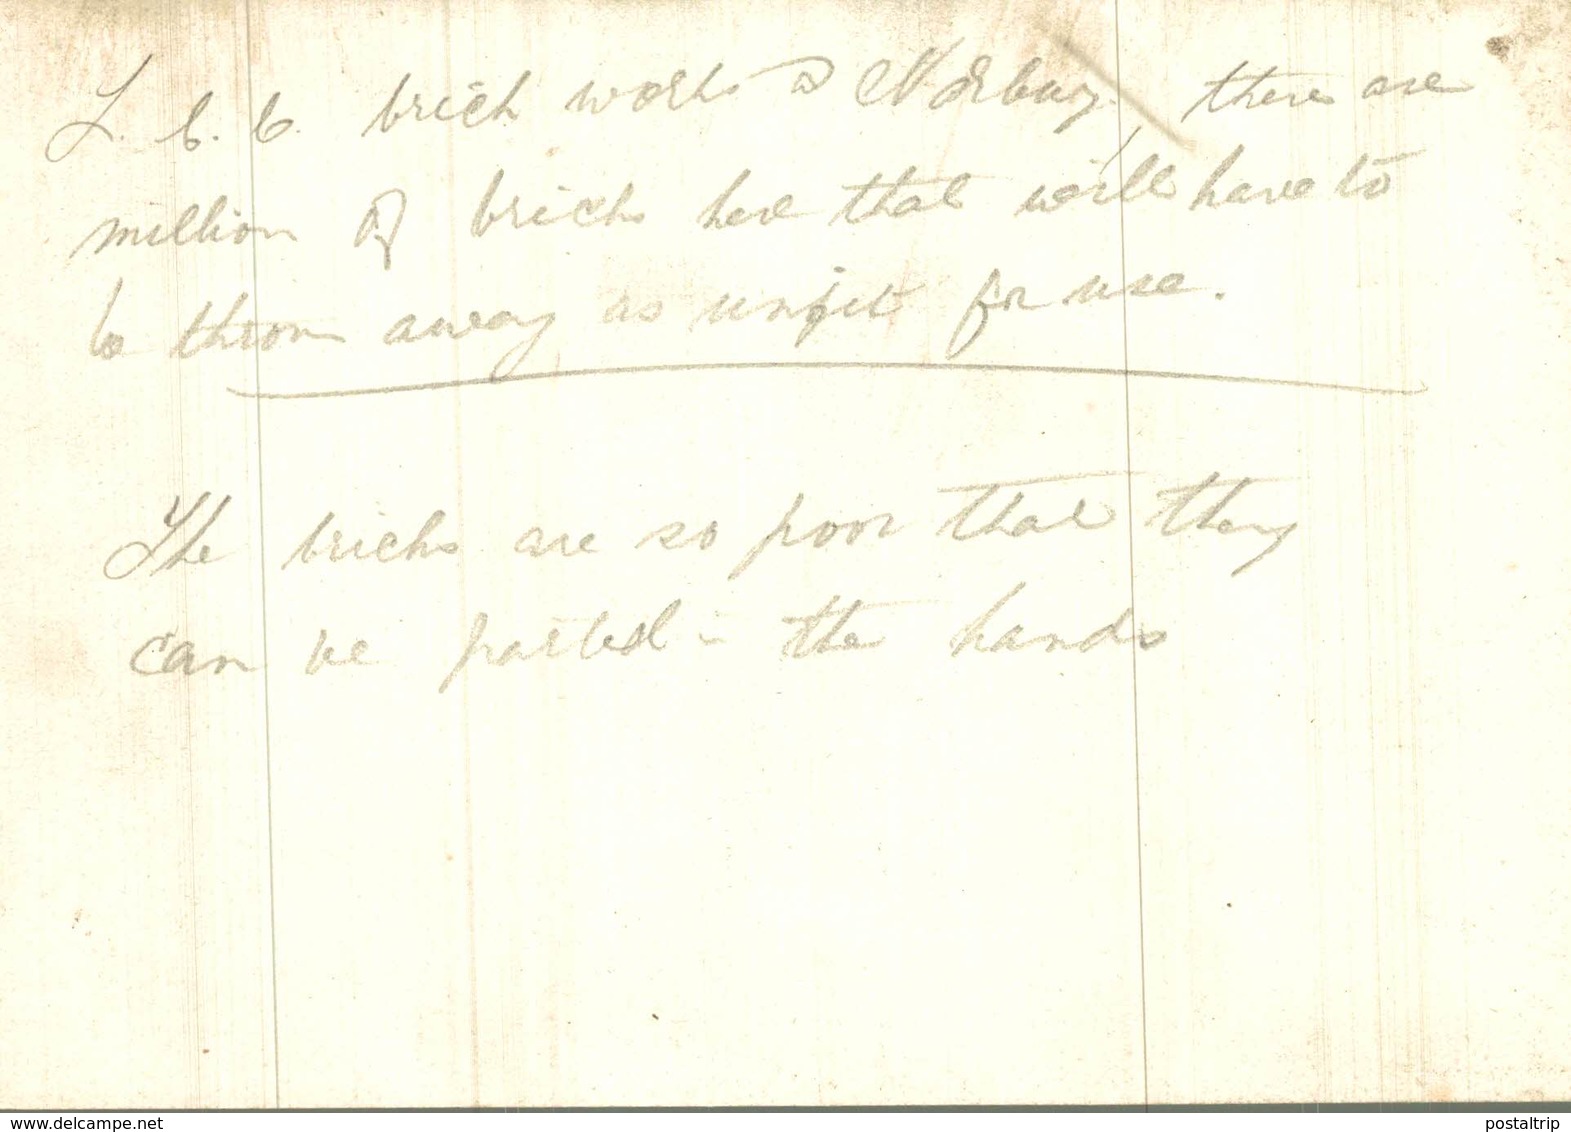 L.C.C. brick works @ Norbury, there are
million of bricks here that will have to
be thrown away as unfit for use.
The bricks are so poor that they
can be parted in the hands
www.delcampe.net
postaltrip